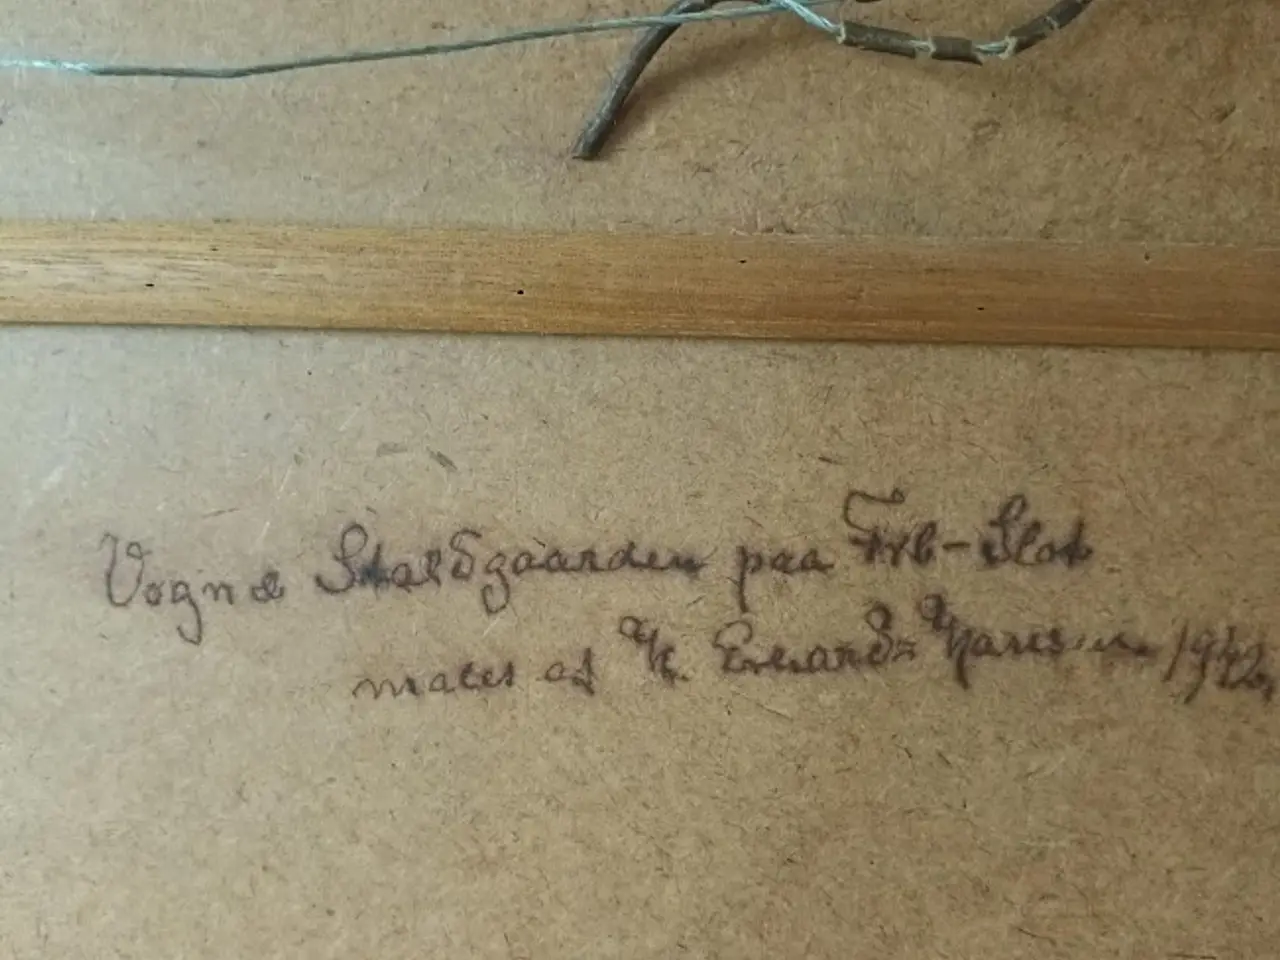 Vogn & Staldgaarden paa Frb-Slot
malet af Hansen 1942.